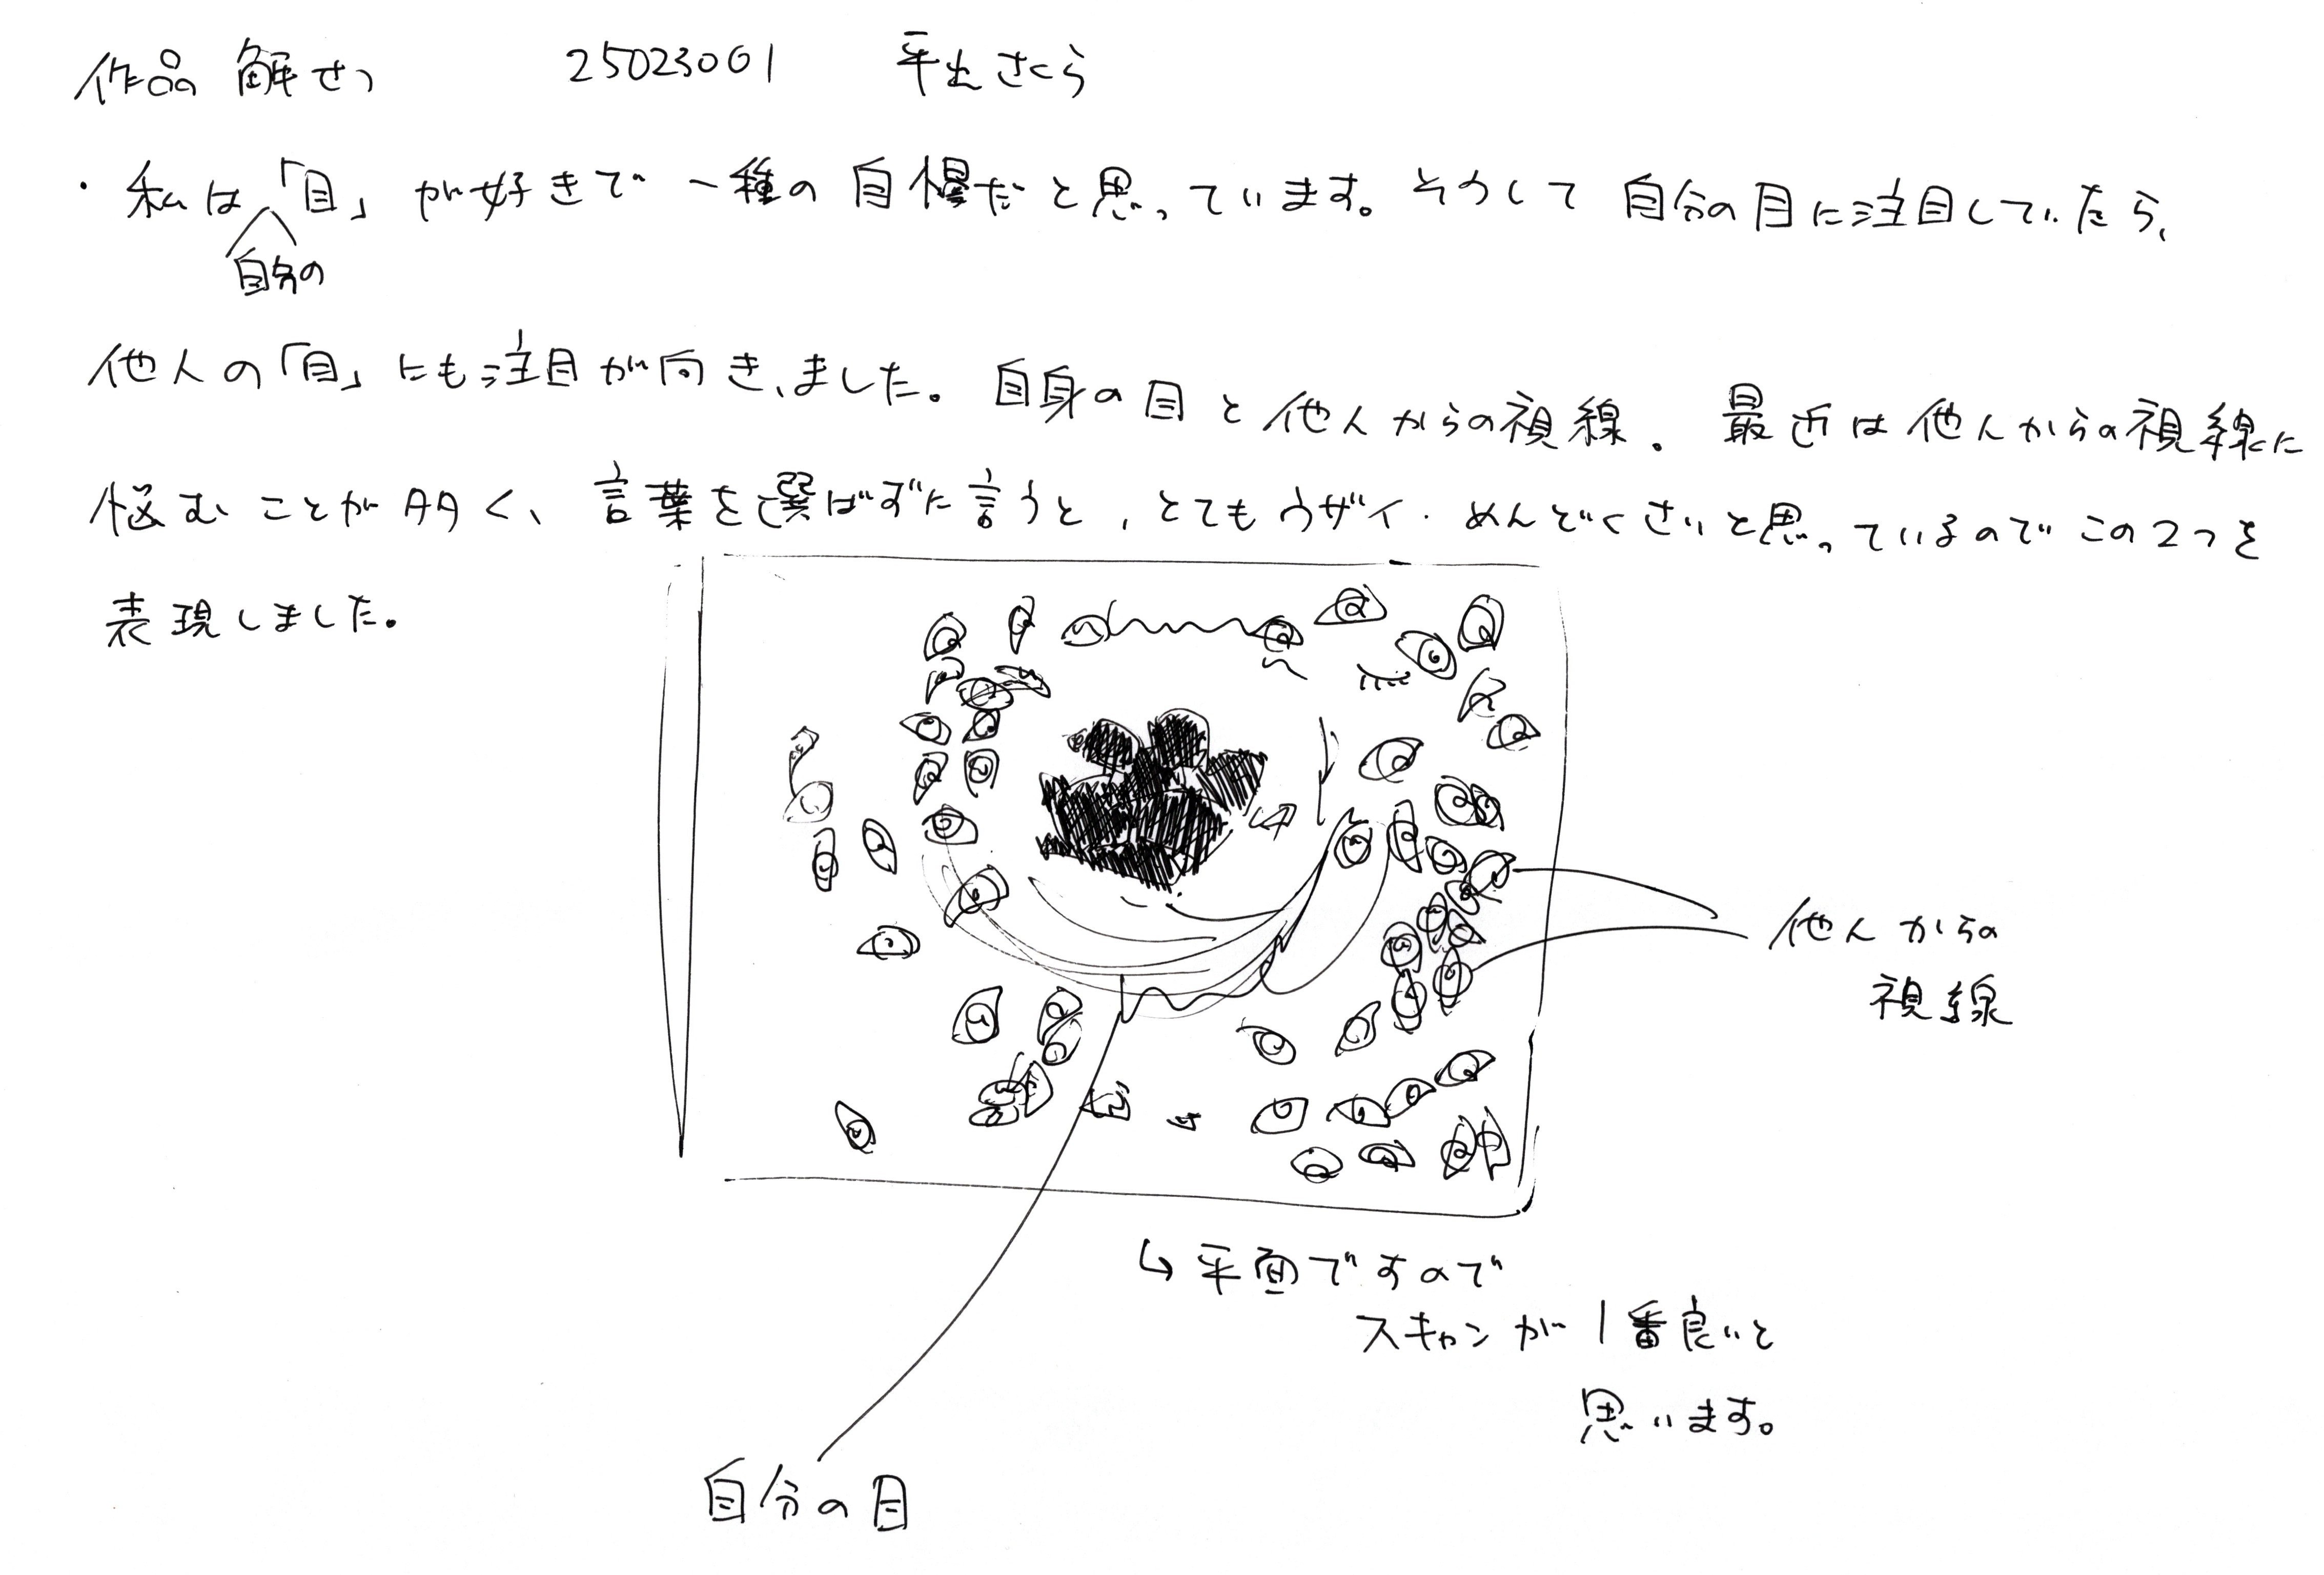 作品 解せつ 25023001 平出さくら
・私は「目」が好きで一種の自慢だと思っています。そうして自分の目に注目していたら、
自分の
他人の「目」にも注目が向きました。自身の目と他人からの視線。最近は他人からの視線に
悩むことが多く、言葉を選ばずに言うと、とてもウザイ・めんどくさいと思っているのでこの2つを
表現しました。
他人からの
視線
↳平面ですので
スキャンが1番良いと
思います。
自分の目